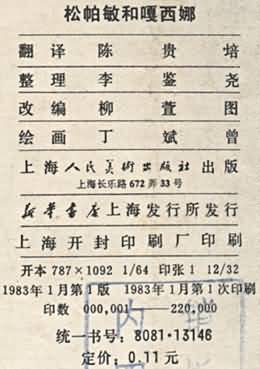 松帕敏和嘎西娜
翻译 陈贵培
整理 李鉴尧
改编 柳萱图
绘画 丁斌曾
上海人民美术出版社出版
上海长乐路672弄33号
新华书店上海发行所发行
上海开封印刷厂印刷
开本 787×1092 1/64 印张 1 12/32
1983年1月第1版 1983年1月第1次印刷
印数 000,001——220,000
统一书号：8081·13146
定价：0.11元
内销